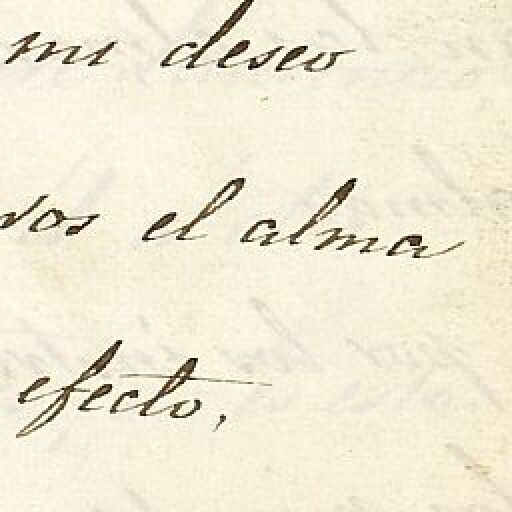 mi deseo
vos el alma
efecto,